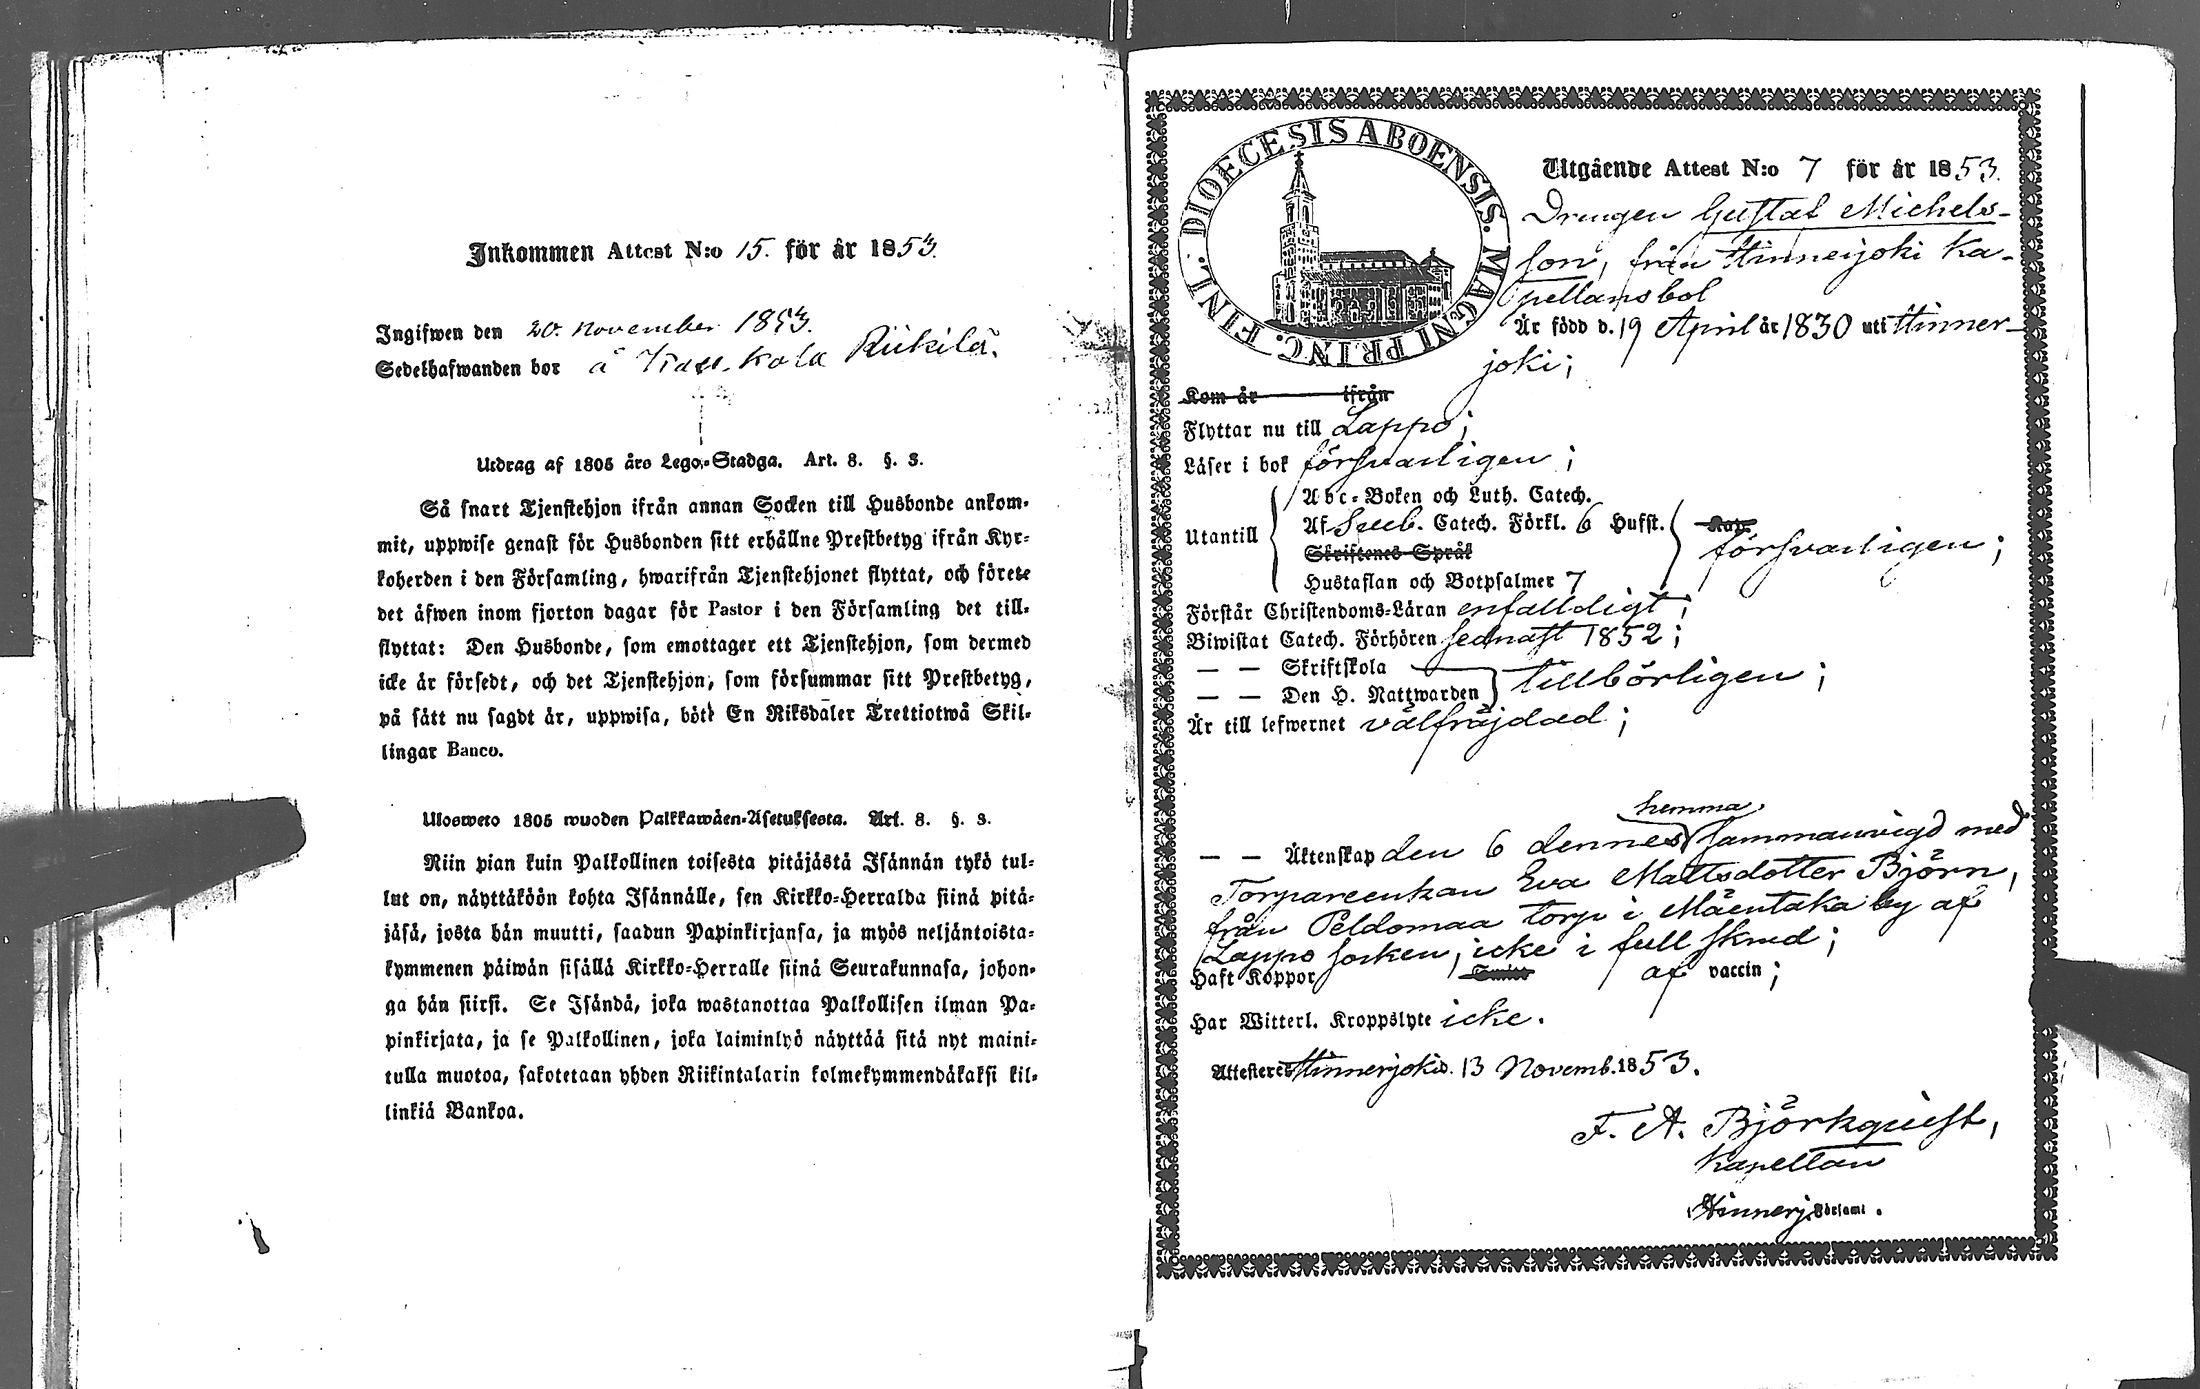 Inkommen Attest N:o 15. för år 1853.
Ingifwen den 20. november 1853.
Sedelhafwanden bor å Kiukola Riikilä.
Utdrag af 1805 års Lego-Stadga. Art. 8. §. 3.
Så snart Tjenstehjon ifrån annan Socken till Husbonde ankom-
mit, uppwise genast för Husbonden sitt erhållne Prestbetyg ifrån Kyr-
koherden i den Församling, hwarifrån Tjenstehjonet flyttat, och förete
det äfwen inom fjorton dagar för Pastor i den Församling det till-
flyttat: Den Husbonde, som emottager ett Tjenstehjon, som dermed
icke är försedt, och det Tjenstehjon, som försummar sitt Prestbetyg,
på sätt nu sagdt är, uppwisa, böte En Riksdaler Trettiotwå Skil-
lingar Banco.
Ulosweto 1805 wuoden Palkkawäen-Asetuksesta. Art. 8. §. 3.
Niin pian kuin Palkollinen toisesta pitäjästä Isännän tykö tul-
lut on, näyttäköön kohta Isännälle, sen Kirkko-Herralda siinä pitä-
jäsä, josta hän muutti, saadun Papinkirjansa, ja myös neljäntoista-
kymmenen päiwän sisällä Kirkko-Herralle siinä Seurakunnasa, johon-
ga hän siirsi. Se Isändä, joka wastanottaa Palkollisen ilman Pa-
pinkirjata, ja se Palkollinen, joka laiminlyö näyttää sitä nyt maini-
tulla muotoa, sakotetaan yhden Riikintalarin kolmekymmendäkaksi kil-
linkiä Bankoa.
DIOECESIS ABOENSIS. MAGNI PRINC. FINL.
Utgående Attest N:o 7 för år 1853.
Drengen Gustaf Michels-
son, från Hinnerjoki Ka-
pellansbol
Är född d. 19 April år 1830 uti Hinner-
joki;
Kom år ifrån
Flyttar nu till Lappo;
Läser i bok försvarligen;
Utantill
Abc-Boken och Luth. Catech.
Af Sveb. Catech. Förkl. 6 Hufst.
Skriftenes Språk
Hustaflan och Botpsalmer 7
försvarligen;
Förstår Christendoms-Läran enfalldigt;
Biwistat Catech. Förhören sednast 1852;
— — Skriftskola
— — Den H. Nattwarden
tillbörligen;
Är till lefwernet välfräjdad;
hemma
— — Äktenskap den 6 dennes sammanvigd med
Torpareenkan Eva Mattsdotter Björn,
från Peldomaa torp i Mäentaka by af
Lappo socken, icke i full skrud;
Haft Koppor af vaccin;
Har Witterl. Kroppslyte icke.
Attesteres Hinnerjoki d. 13 Novemb. 1853.
F. A. Björkquist,
Kapellan
Hinnerj. Församl.